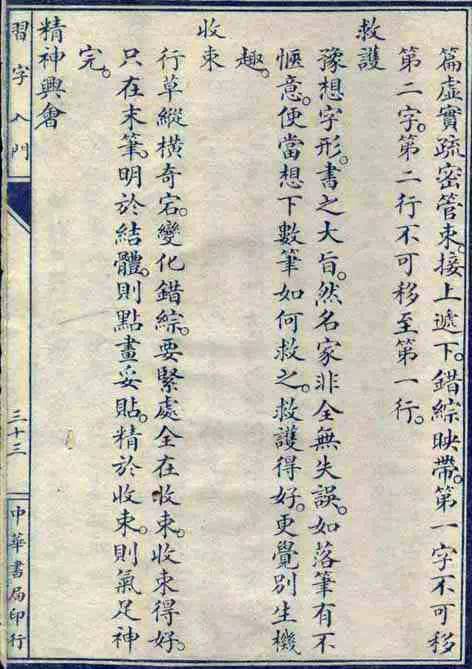 篇虛實疏密管束。接上遞下。錯綜映帶。第一字不可移
第二字。第二行不可移至第一行。
救護
豫想字形。書之大旨。然名家非全無失誤。如落筆有不
愜意。便當想下數筆如何救之。救護得好。更覺別生機
趣。
收束
行草縱橫奇宕。變化錯綜。要緊處全在收束。收束得好。
只在末筆。明於結體。則點畫妥貼。精於收束。則氣足神
完。
精神興會
習字入門
三十三
中華書局印行